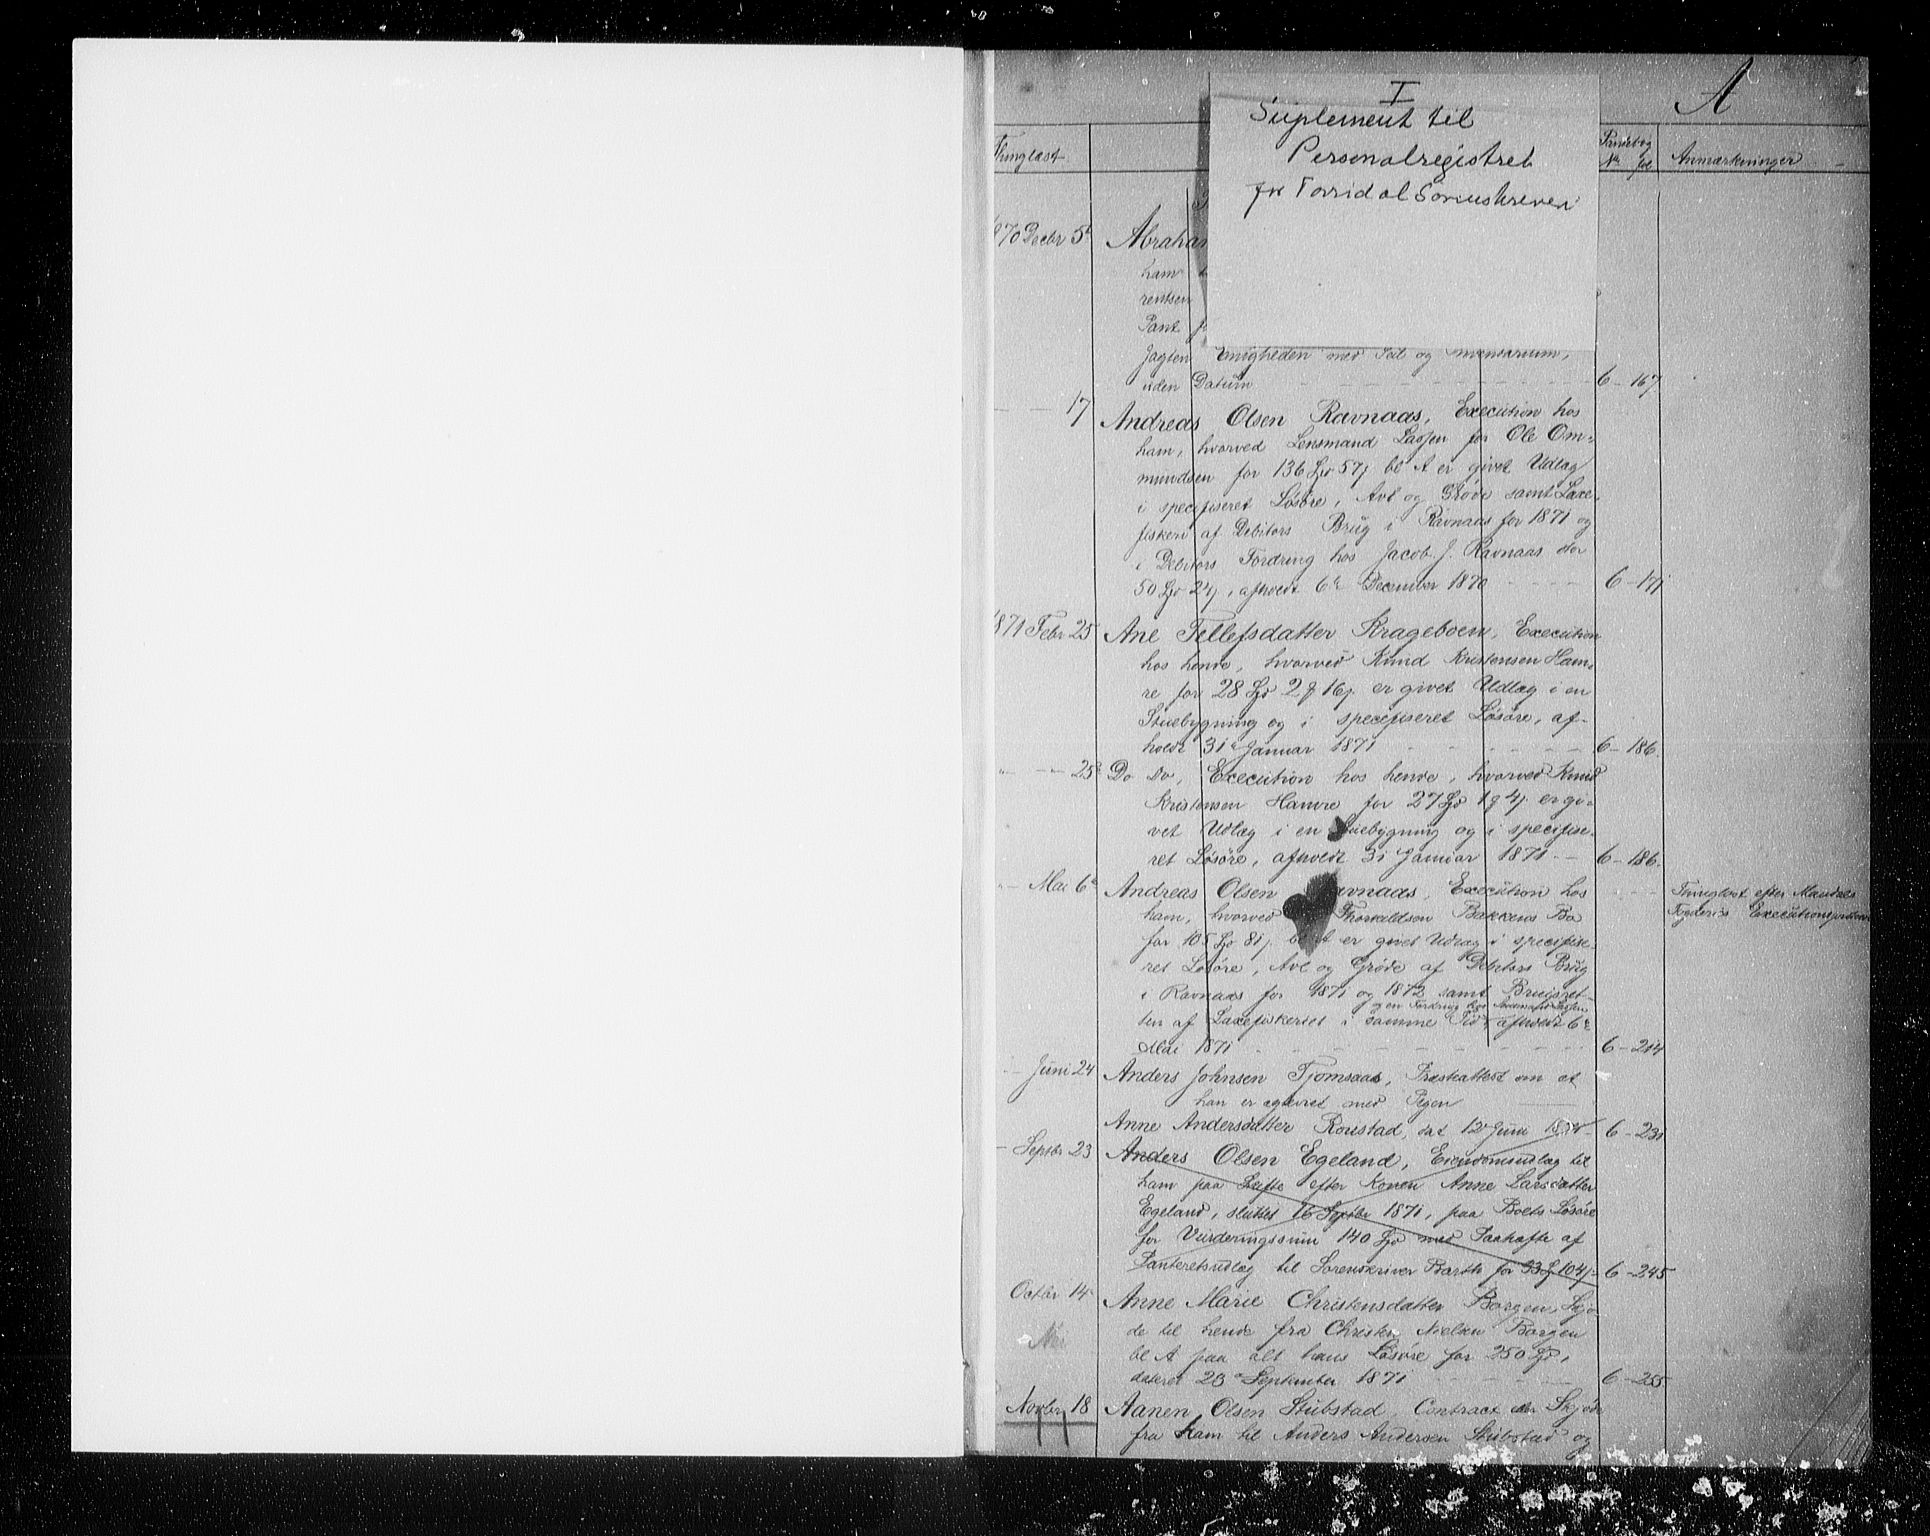 A
I
Suplement til
Personalregistret
for Torridal Sorenskriveri
Thinglæst
Pantebog
No fol
Anmærkninger
1870 Decbr 5t
ham
rentsen
Pant
Jagten Enigheden med Seil og Inventarium,
uden Datum 6-167
17 Andreas Olsen Ravnaas, Execution hos
ham, hvorved Lensmand for Ole Om-
mundsen for 136 Spd 57 bl A er givet Udlæg
i specifiseret Løsøre, Avl og Grøde samt Laxe-
fisken af Debitors Brug i Ravnaas for 1871 og
i Debitors Fordring hos Jacob J. Ravnaas stor
50 Spd 24, afholdt 6te December 1870 6-171
1871 Febr 25 Ane Tellefsdatter Krageboen, Execution
hos hende, hvorved Knud Kristensen Ham-
re for 28 Spd 2 16 er givet Udlæg i en
Stuebygning og i specefiseret Løsøre, af-
holdt 31te Januar 1871 6-186
25 Do Do, Execution hos hende, hvorved Knud
Kristensen Hamre for 27 Spd 1 4 er gi-
vet Udlæg i en Stuebygning og i specifise-
ret Løsøre, afholdt 31 Januar 1871 6-186
Mai 6te Andreas Olsen Ravnaas, Execution hos
ham, hvorved Thorkildsen Bakkens Bo
for 105 Spd 81 bl A er givet Udlæg i specifise-
ret Løsøre, Avl og Grøde af Debitors Brug
i Ravnaas for 1871 og 1872 samt Brugsret-
og en Fordring hos
ten af Laxefiskeriet i samme Tid, afholdt 6te
Mai 1871 6-214
Thinglæst efter Mandals
Fogderies Executionsprotocol
Juni 24 Anders Johnsen Tjomsaas, Præsteattest om at
han er ægteviet med Pigen
Anne Andersdatter Roustad, dat 12 Juni 6-231
Septbr 23 Anders Olsen Egeland, Eiendomsudlæg til
ham paa Skifte efter Konen Anne Larsdatter
Egeland, sluttet 16 Septbr 1871, paa Boets Løsøre
for Vurderingssum 140 Spd med Paahæfte af
Panteretsudlæg til Sorenskriver Barth for 93 104 6-245
Octbr 14 Anne Marie Christensdatter Borgen, Skjø-
de til hende fra Christen Nielsen Borgen
bl A paa alt hans Løsøre for 250 Spd,
dateret 23 September 1871 6-255
Novbr 18 Aanen Olsen Stubstad, Contract Skjøde
fra ham til Anders Andersen Stubstad og